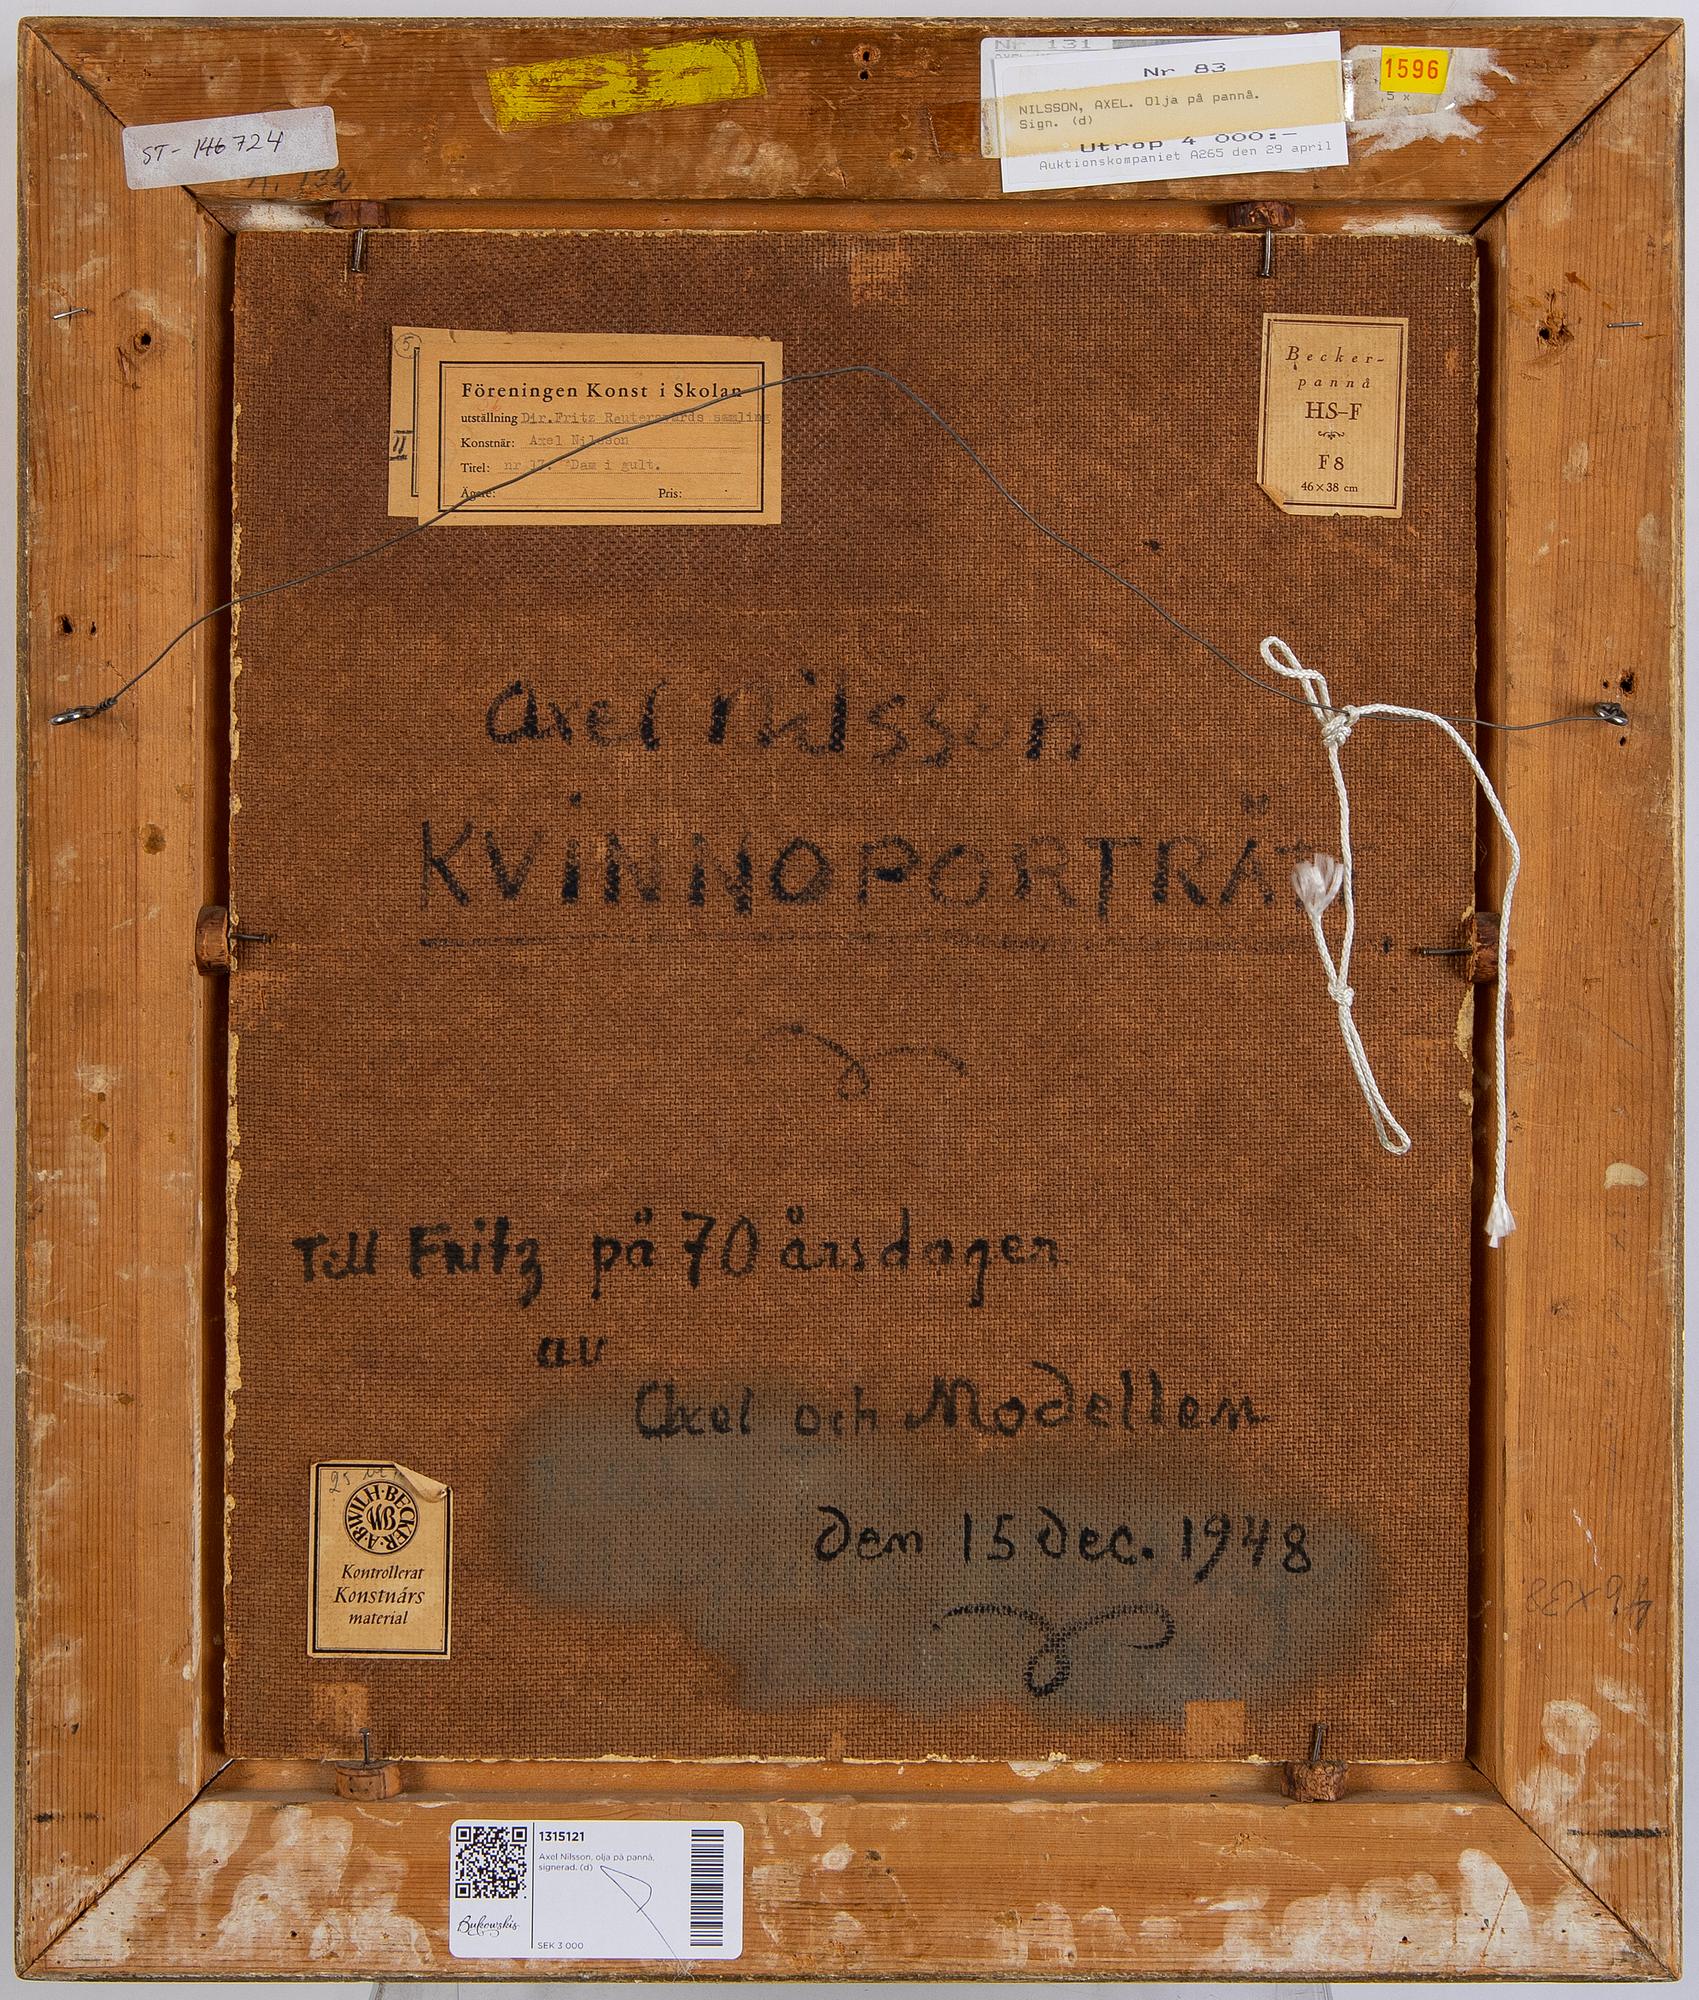 Nr 131
Nr 83
NILSSON, AXEL. Olja på pannå.
Sign. (d)
Utrop 4 000:-
Auktionskompaniet A265 den 29 april
1596
5 x
ST-146724
5
II
Föreningen Konst i Skolan
utställning Dir.Fritz Reutersvärds samling
Konstnär: Axel Nilsson
Titel: nr 17. "Dam i gult.
Ägare: Pris:
Becker-
pannå
HS-F
F8
46 × 38 cm
axel nilsson
KVINNOPORTRÄTT
Till Fritz på 70 årsdagen
av
Axel och Modellen
den 15 dec. 1948
25
A·B·WILH·BECKER
WB
Kontrollerat
Konstnärs
material
46 x 38
1315121
Axel Nilsson, olja på pannå,
signerad. (d)
Bukowskis
SEK 3 000